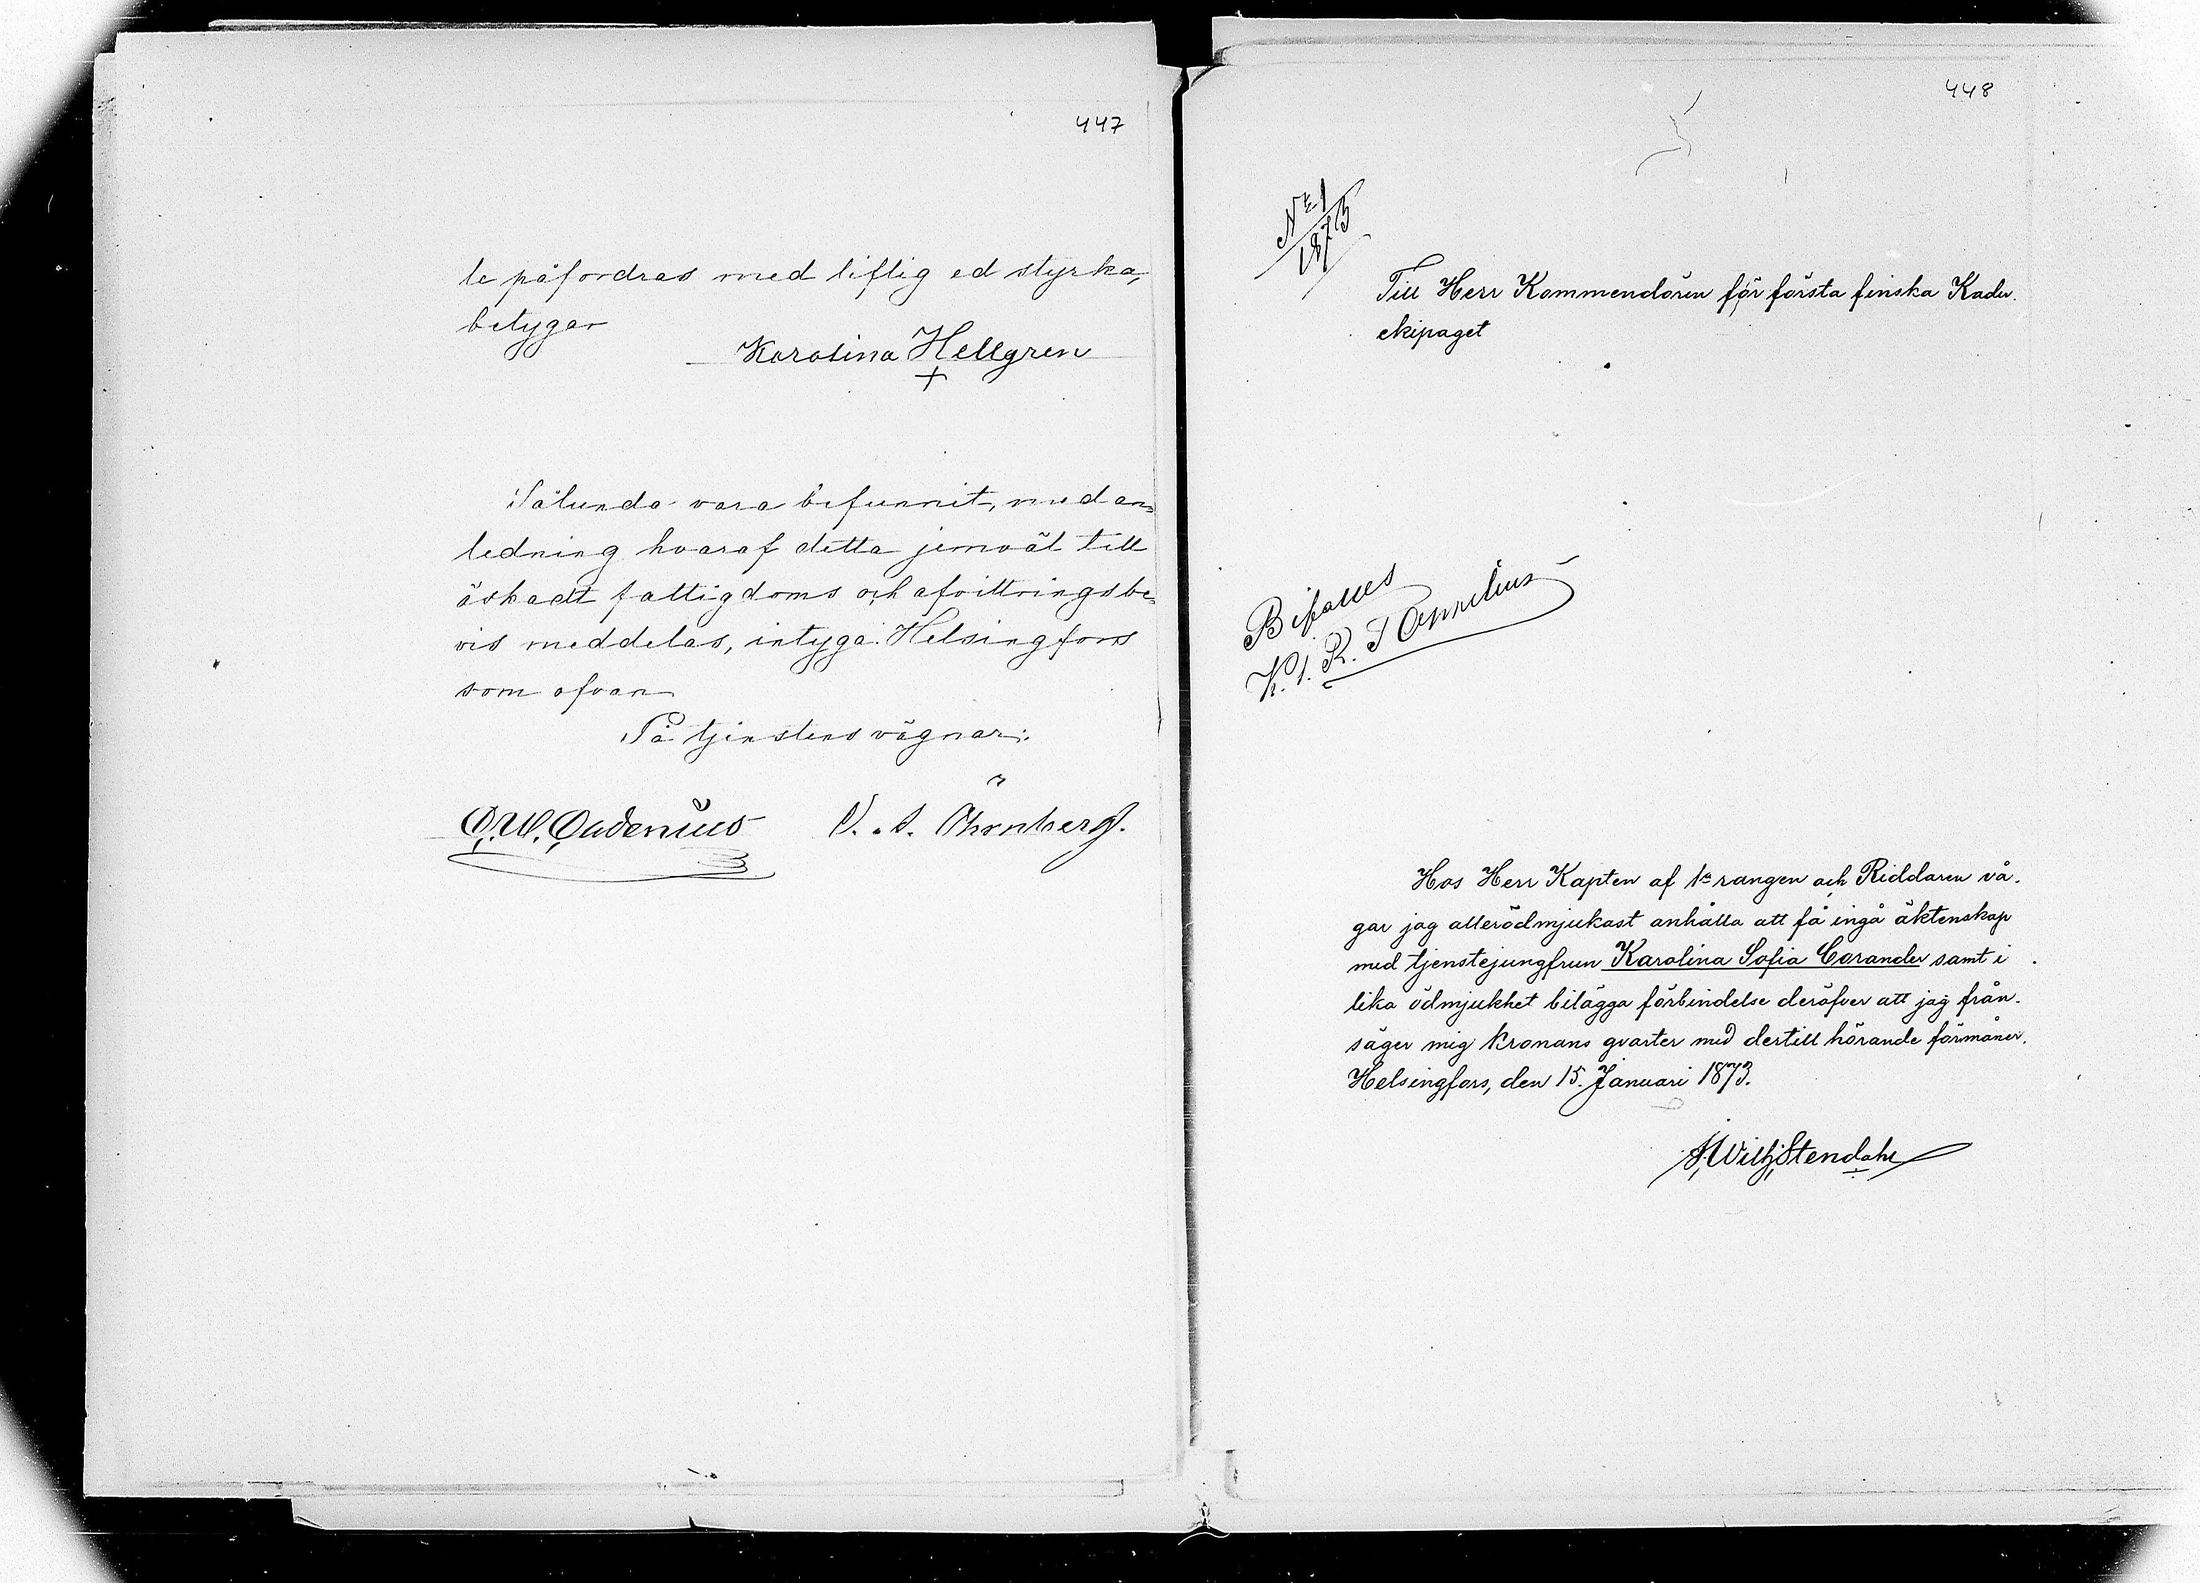 447
le påfordras med liflig ed styrka,
betygar
Karolina Hellgren
+
Sålunda vara befunnit, med an=
ledning hvaraf detta jemväl till
äskadt fattigdoms och afvittringsbe=
vis meddelas, intyga. Helsingfors
som ofvan
På tjenstens vägnar:
Öhrnberg.
448
No 1
1873
Till Herr Kommendören för första finska Kader
ekipaget
Bifalles
Hos Herr Kapten af 1a rangen och Riddaren vå-
gar jag allerödmjukast anhålla att få ingå äktenskap
med tjenstejungfrun Karolina Sofia Corander samt i
lika ödmjukhet bilägga förbindelse deröfver att jag från-
säger mig kronans qvarter med dertill hörande förmåner.
Helsingfors, den 15. Januari 1873.
Wilh. Stendahl